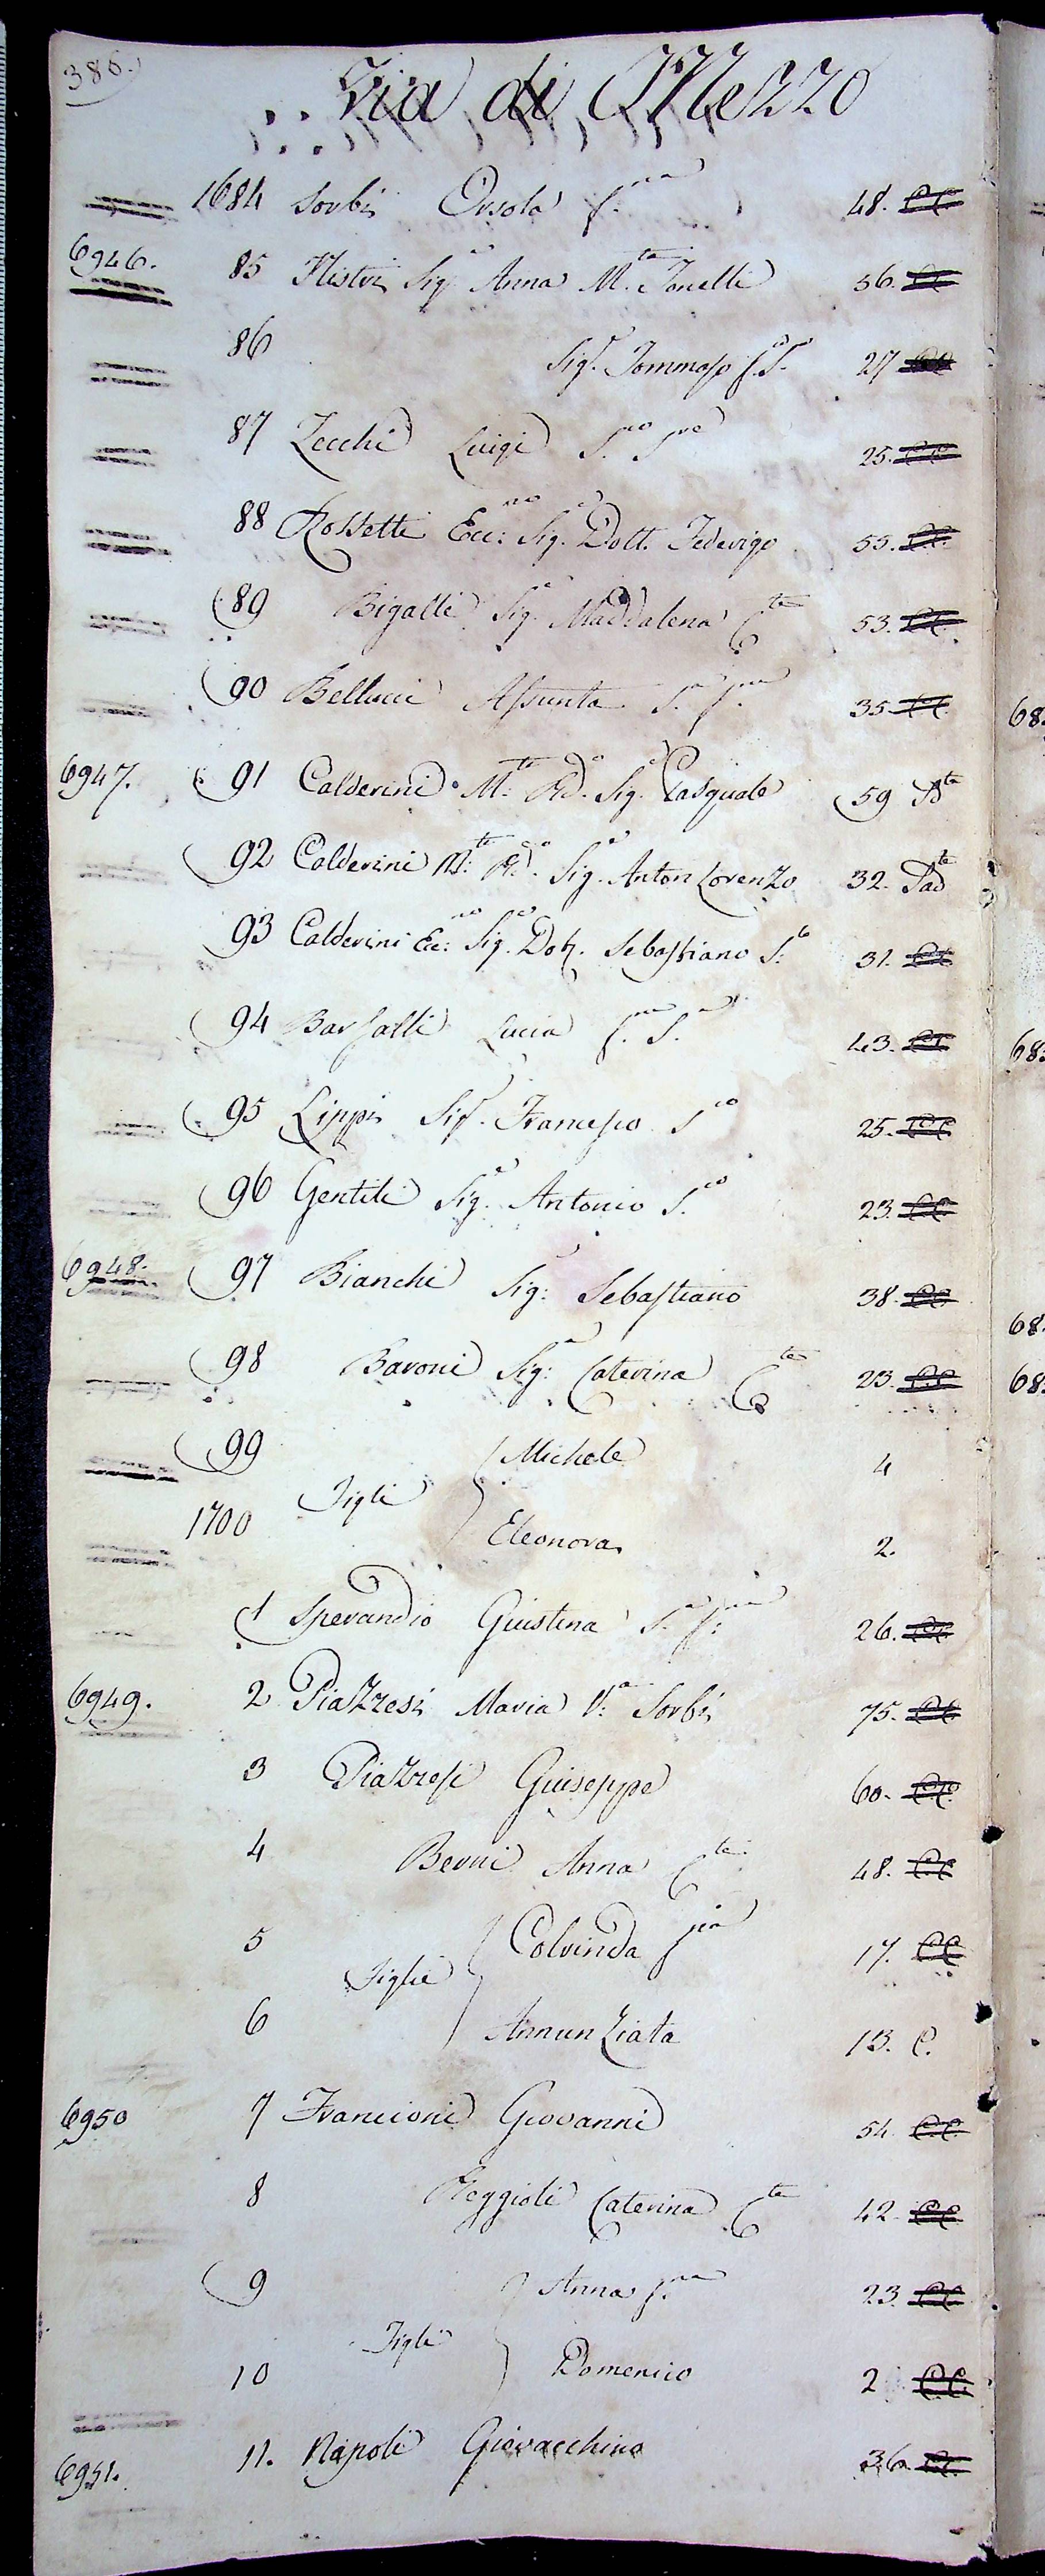 386.
Via di Mezzo
1684 Sorbi Orsola 48. CC
6946. 85 Sig.a Anna M.ta Tonelli 56. CC
86 Sig.r Tommaso 27 CC
87 Zecchi Luigi S.vo 25. CC
88 Rossetti Ecc:mo Sig.e Dott. Federigo 55. CC
89 Bigalli Sig.a Maddalena C.te 53. CC
90 Bellucci Assunta S.a 35 CC
6947. 91 Calderini M:to Rd.o Sig.e Pasquale 59 Dte
92 Calderini M:to Rd.o Sig.e Anton Lorenzo 32. Pad
93 Calderini Ec:mo Sig.e Dot. Sebastiano 31. CC
94 Barsalli Lucia 43. CC
95 Lippi Sig.r Francesco S.co 25. CC
96 Gentili Sig.e Antonio S.co 23. CC
6948. 97 Bianchi Sig:r Sebastiano 38. CC
98 Baroni Sig:a Caterina C.te 23. CC
99 Figli Michele 4
1700 Eleonora 2.
1 Sperandio Giustina 26. CC
6949. 2 Piazzesi Maria V:a Sorbi 75. CC
3 Piazzesi Giuseppe 60. CC
4 Berni Anna C.te 48. CC
5 Figlie Colrinda 17. CC
6 Annunziata 13. C.
6950 7 Francioni Giovanni 54. CC
8 Reggioli Caterina C.te 42. CC
9 Figli Anna 23 CC
10 Domenico 2 CC.
6951. 11. Napoli Giovacchino 36. CC
68
68
68
68